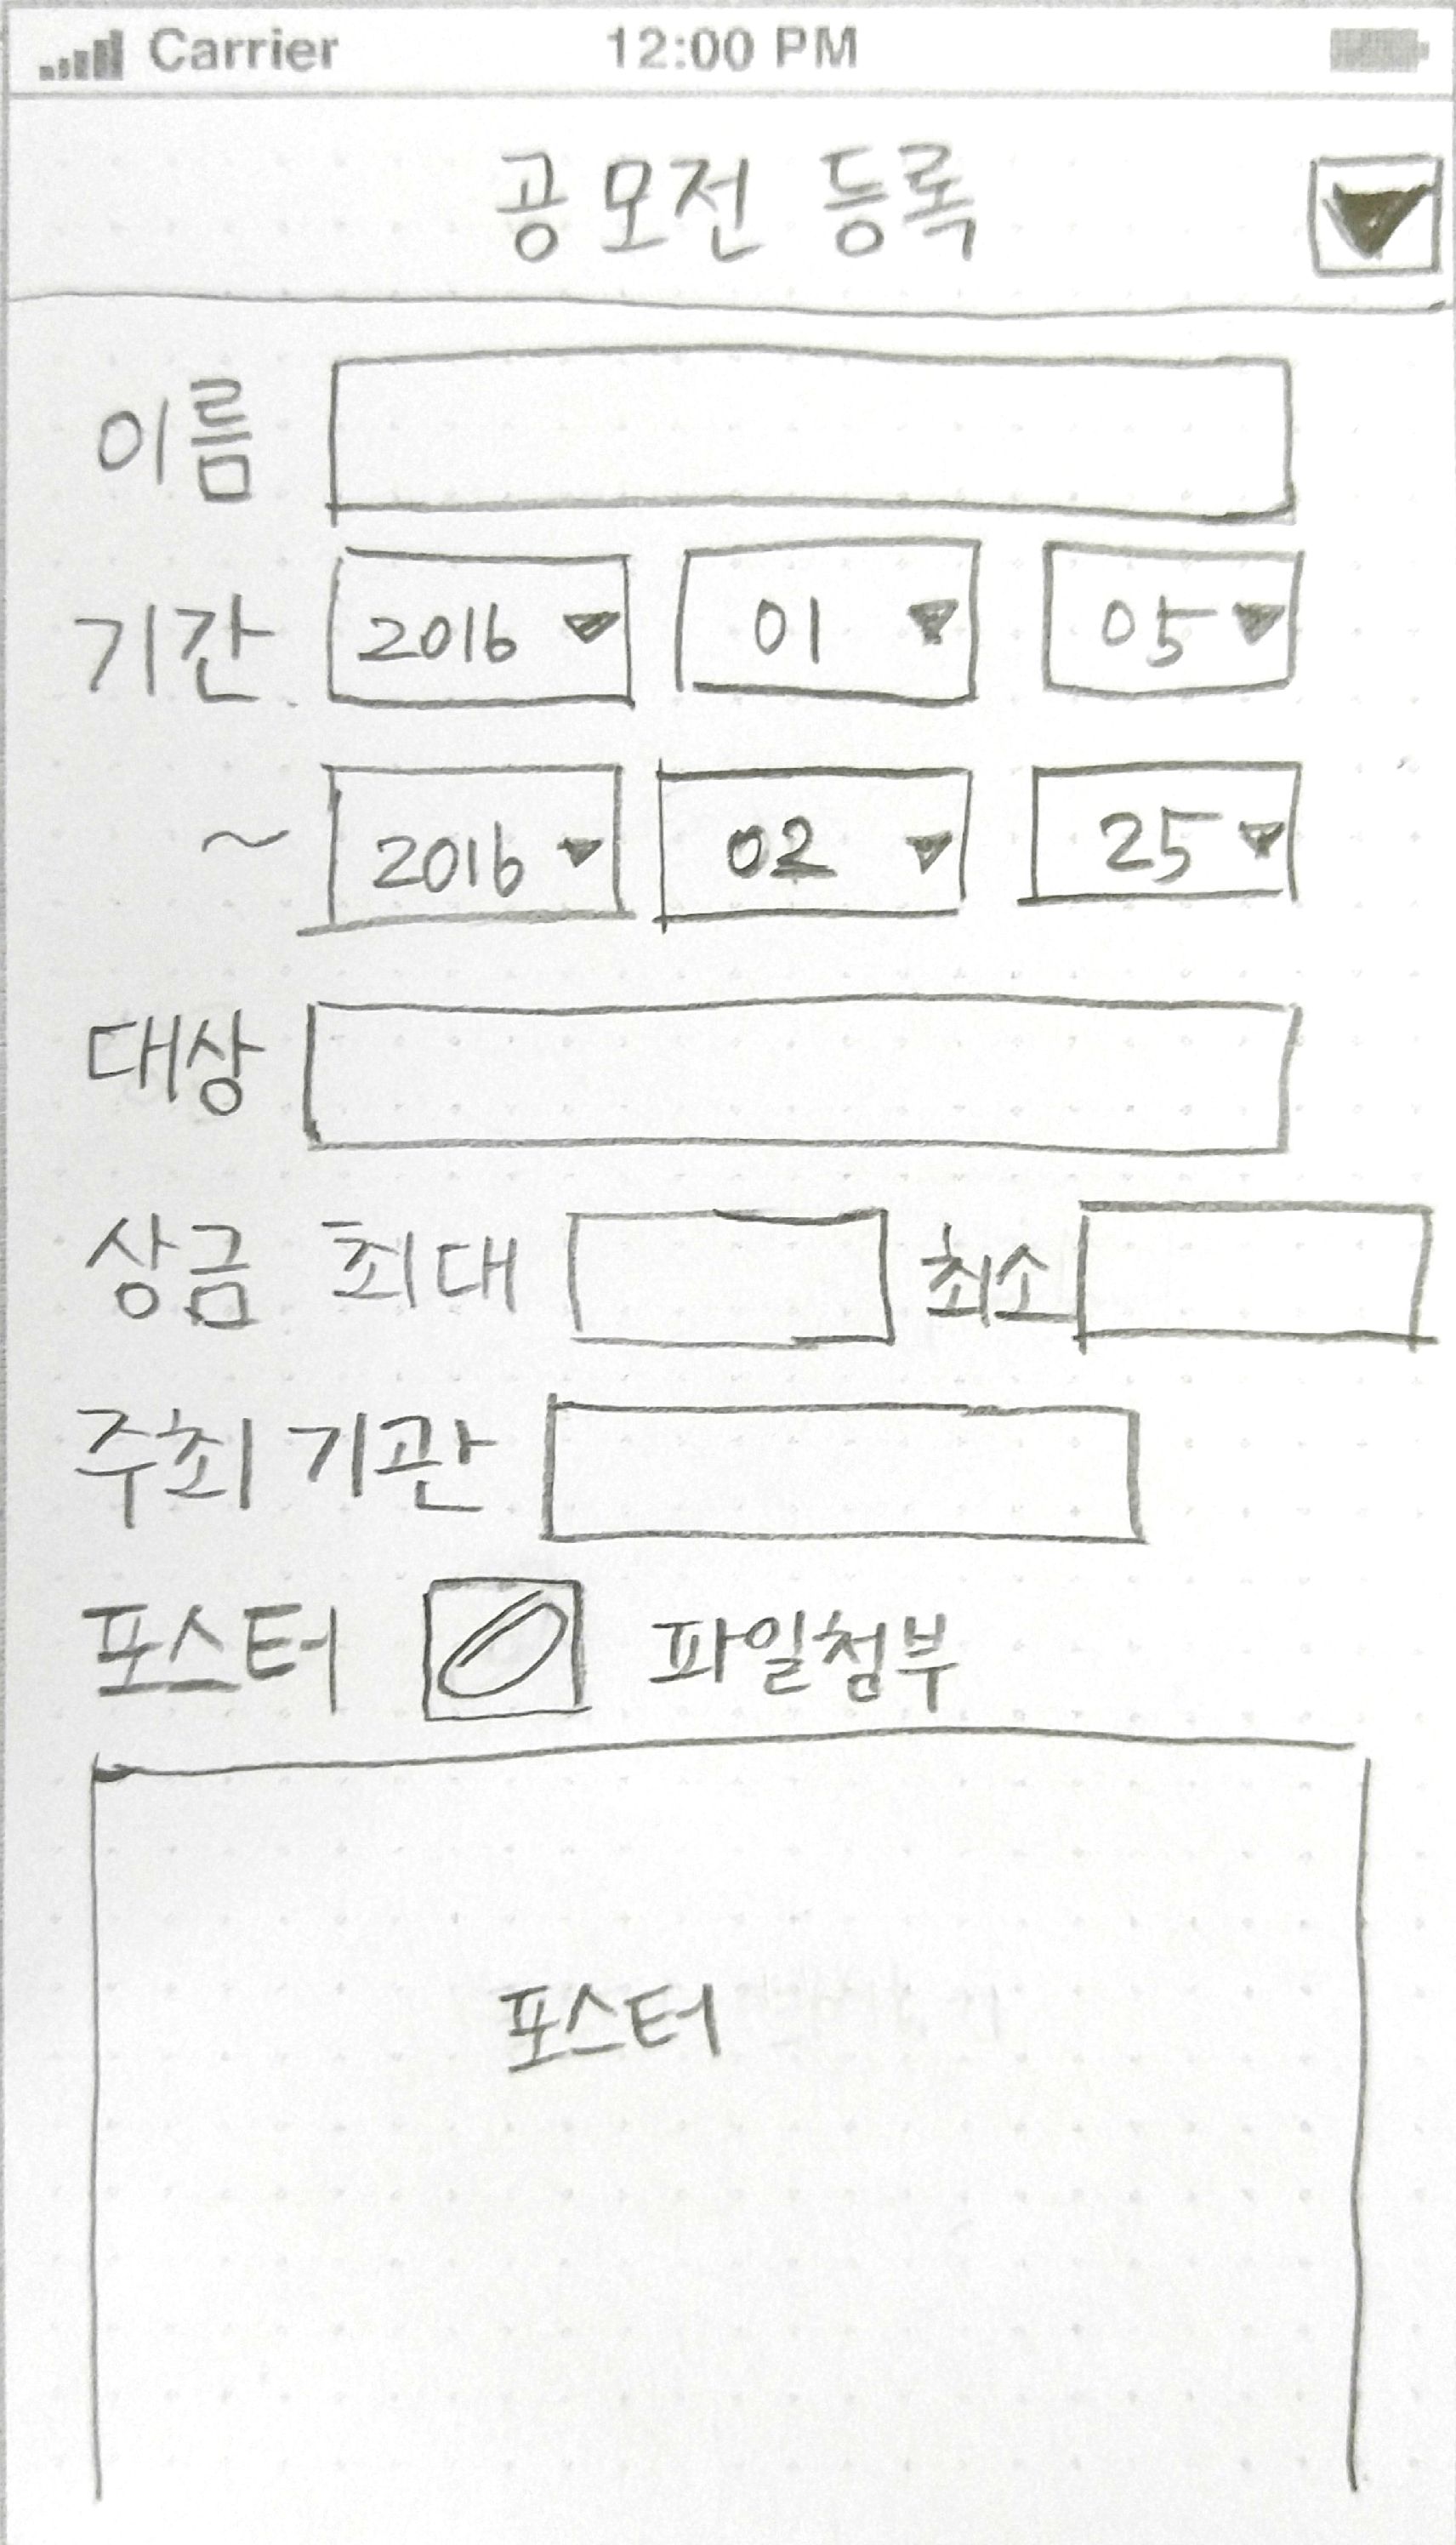 Carrier 12:00 PM
공모전 등록
이름
기간 2016 01 05
~ 2016 02 25
대상
상금 최대 최소
주최 기관
포스터 파일첨부
포스터